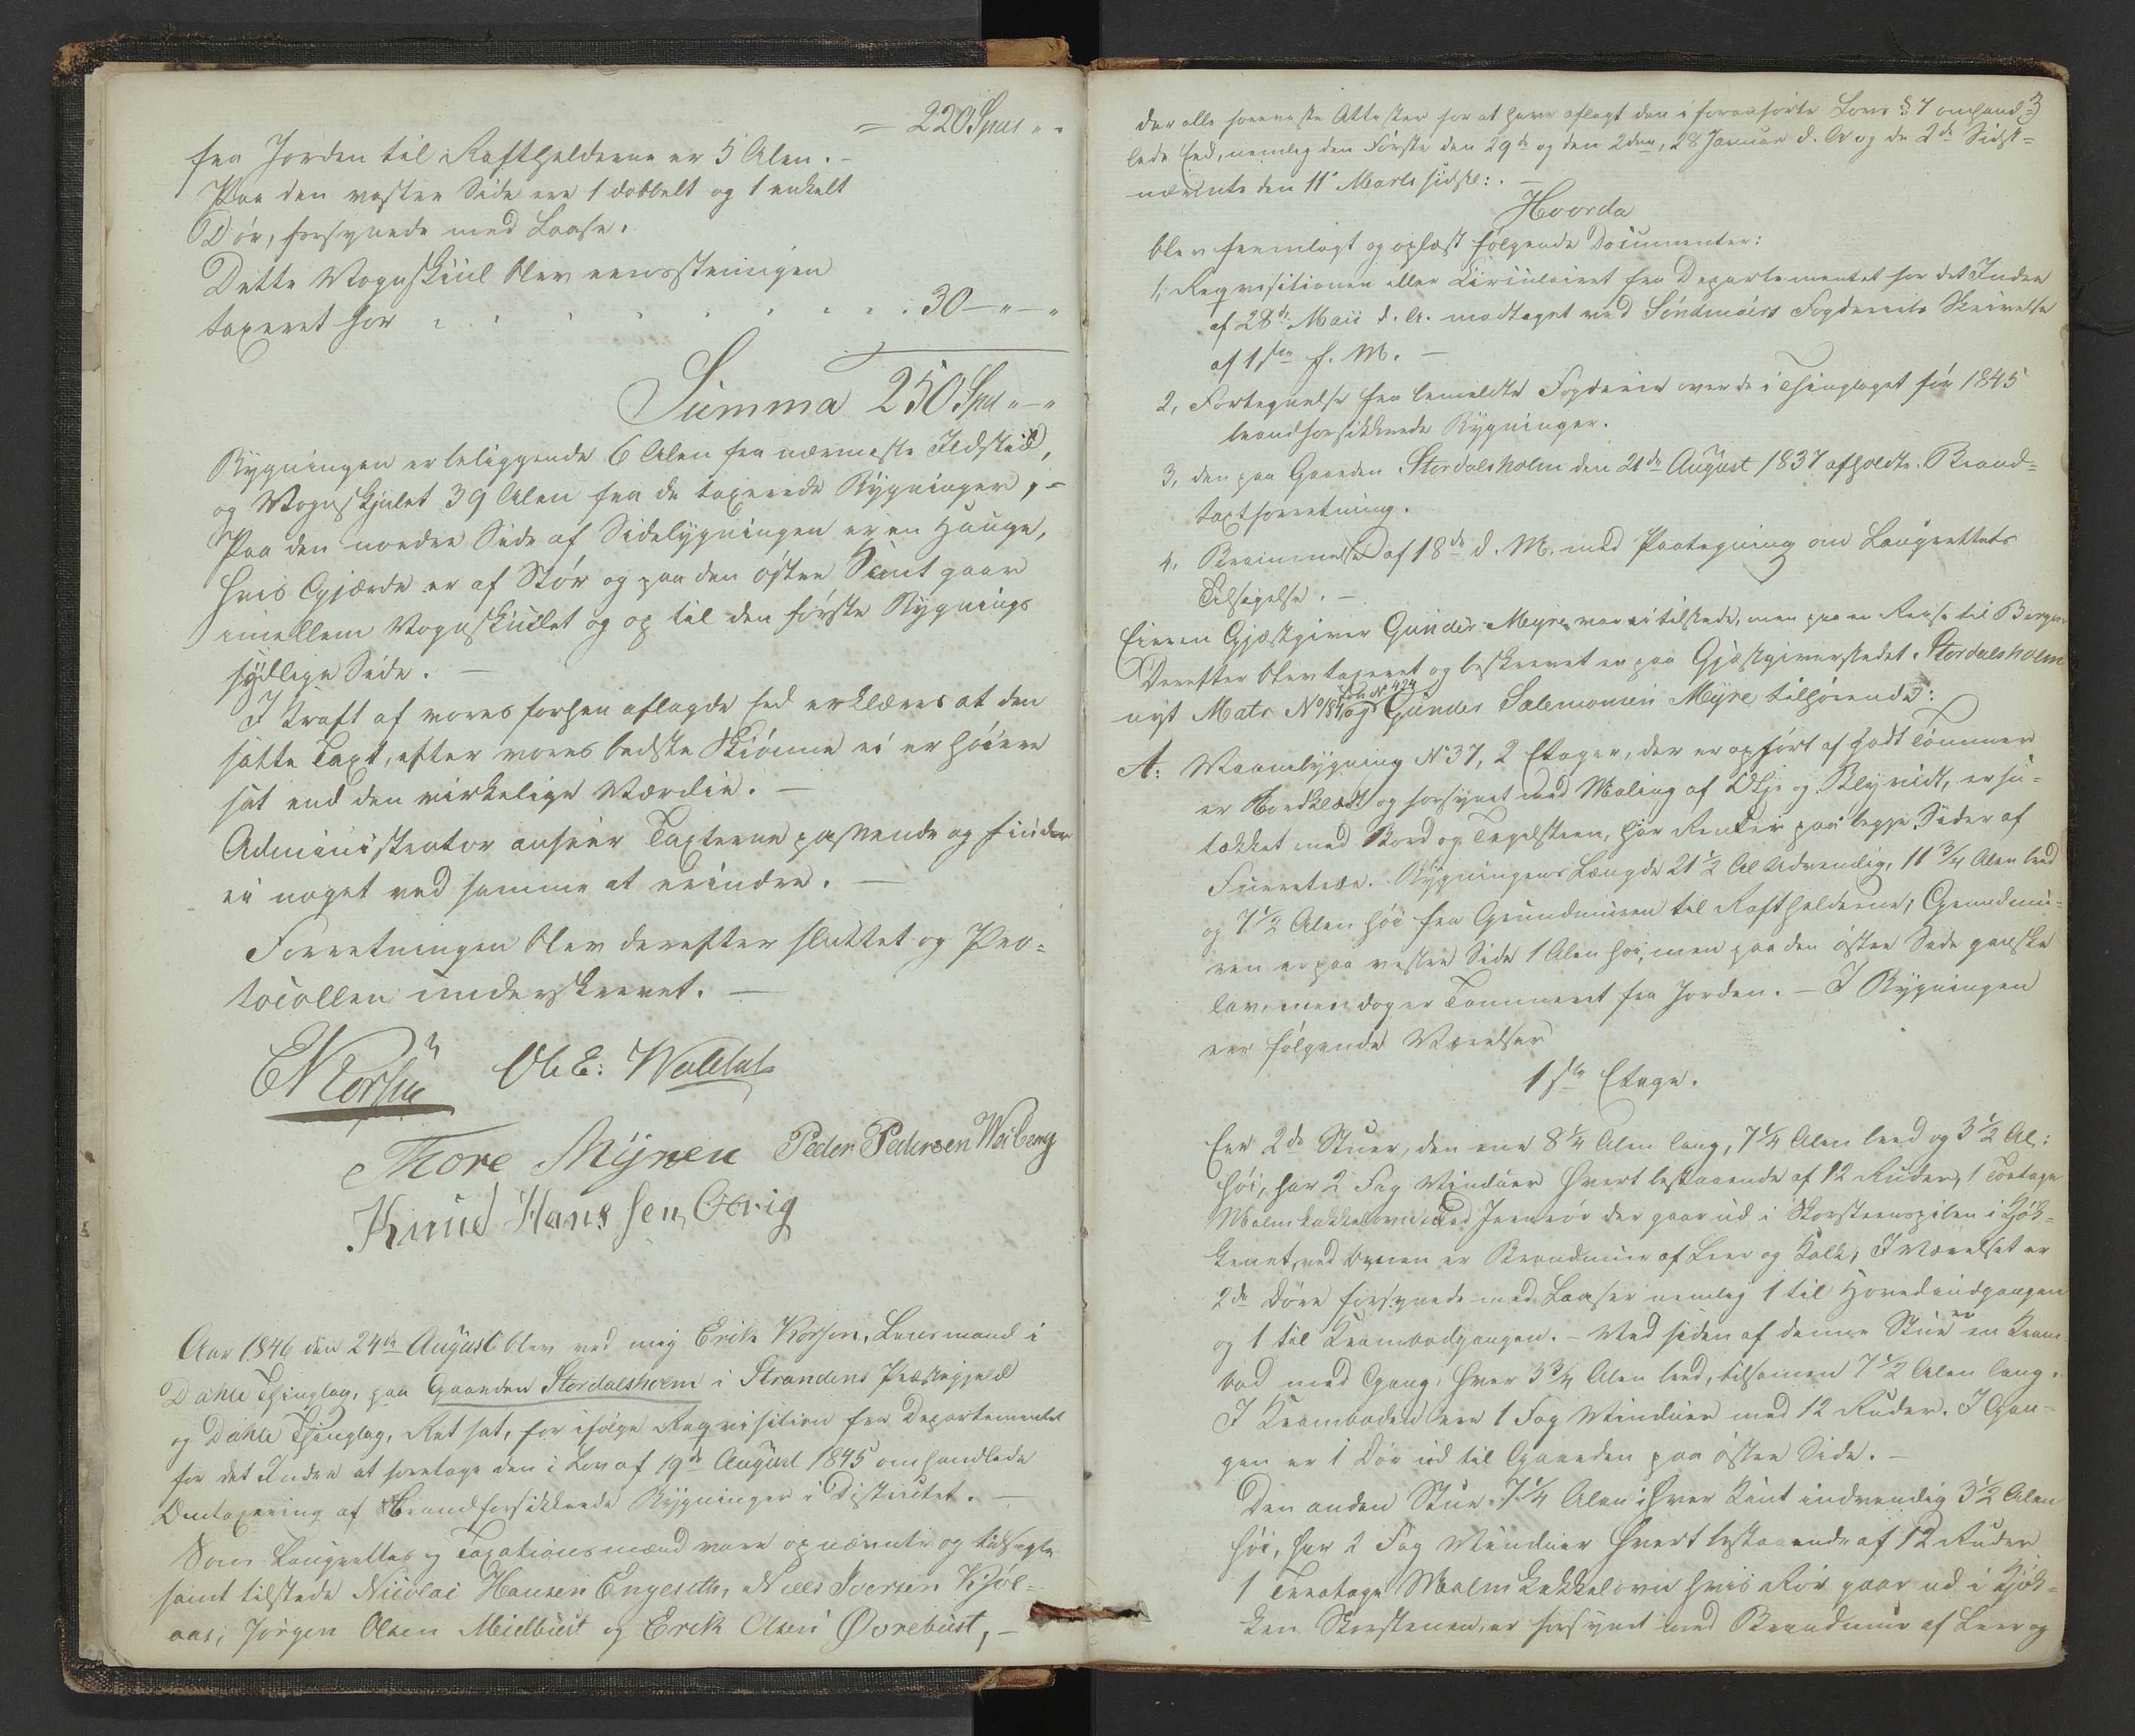 = 220 Spd „ „
fra Jorden til Raftholderne er 5 Alen. –
Paa den vestre Side ere 1 dobbelt og 1 enkelt
Dör, forsynede med Laase.
Dette Vognskiul blev eensstemigen
taxeret for . . . . . . . . 30 – „ – „
Summa 250 Spd „ – „
Bygningen er beliggende 6 Alen fra nærmeste Ildsted,
og Vognskjulet 39 Alen fra de taxerede Bygninger, –
Paa den nordre Side af Sidebygningen er en Hauge,
hvis Gjærde er af Stör og paa den östre Kant gaar
imellem Vognskiulet og op til den förste Bygnings
sydlige Side. –
I Kraft af vores forhen aflagde Eed erklæres at den
satte Taxt, efter vores bedste Skiönne ei er höiere
sat end den virkelige Værdie. –
Administrator anseer Taxterne passende og finder
ei noget ved samme at erindre. –
Forretningen blev derefter sluttet og Pro=
tocollen underskrevet. –
E Korsen Ole E: Waldal
Thore Myren Peder Pedersen Weiberg
Knud Hanssen Overig
Aar 1846 den 24de August blev ved mig Erik Korsen, Lensmand i
Dahle Thinglag, paa Gaarden Stordalsholm i Strandens Præstegjeld
og Dahle Thinglag, Ret sat, for ifölge Reqvisition fra Departementet
for det Indre at foretage den i Lov af 19de August 1845 omhandlede
Omtaxering af Brandforsikkrede Bygninger i Districtet. –
Som Laugrettes og Taxationsmænd vare opnævnte og tilsagte
samt tilstede Nicolai Hansen Engeseth, Niels Iversen Kjöl=
aas, Jörgen Olsen Meielbust og Erik Olsen Øvrebust, –
3
der alle foreviste Attester for at have aflagt den i foranförte Lovs § 7 omhand=
lede Eed, nemlig den Förste den 29de og den 2den, 28 Januar d. A. og de 2de Sidst=
nævnte den 11' Marts sidstl: . –
Hvorda
blev fremlagt og oplæst fölgende Documenter:
1, Reqvisitionen eller Circulairet fra Departementet for det Indre
af 28de Maii d. A. modtaget ved Söndmörs Fogderies Skrivelse
af 1ste f. M. –
2, Fortegnelse fra bemeldte Fogderie over de i Thinglaget för 1845
brandforsikkrede Bygninger.
3, den paa Gaarden Stordalsholm den 21de August 1837 afholdte Brand=
taxtforretning.
4, Berammelse af 18de d. M. med Paategning om Laugrettets
Tilsigelse. –
Eieren Gjæstgiver Gunder Meyre var ei tilstede, men paa en Reise til Bergen
Derefter blev taxeret og beskrevet en paa Gjæstgiverstedet Stordalsholm
nyt Matr No 184 Löb No 424 og Gunder Salemonsen Myre tilhörende:
A: Vaanebygning No 37, 2 Etager, der er opfört af godt Tömmer
er Bordklædt og forsynet med Maling af Olje og Blyvidt, er
tækket med Bord og Tegelsteen, har paa begge Sider af
Furretræe. – Bygningens Længde 21 1/2 Al Udvendig, 11 3/4 Alen bred
og 7 1/2 Alen höi fra Grundmuren til Raftholderne; Grundmu=
ren er paa vestre Side 1 Alen höi, men paa den östre Side ganske
lav, men dog er Tommeret fra Jorden. – I Bygningen
ere fölgende Værelser
1ste Etage.
Ere 2de Stuer, den ene 8 1/4 Alen lang, 7 1/4 Alen bred og 3 1/2 Al:
höi, har 2 Fag Vinduer hvert bestaaende af 12 Ruder, 1 Toetage
Malmkakkelovn med Jernrör der gaar ud i Skorsteenspiben i Kjök=
kenet, ved ovnen er Brandmuur af Leer og Kalk; I Værelset er
2de Döre forsynede med Laaser nemlig 1 til Hovedindgangen
og 1 til Krambodgangen. – Ved siden af denne Stue er en Kram
bod med Gang, hver 3 3/4 Alen bred, tilsamen 7 1/2 Alen lang.
I Kramboden ere 1 Fag Vinduer med 12 Ruder. I Gan=
gen er 1 Dör ud til Gaarden paa östre Side. –
Den anden Stue 7 1/4 Alen i hver Kant indvendig 3 1/2 Alen
höi, har 2 Fag Vinduer hvert bestaaende af 12 Ruder
1 Treetage Malmkakkelovn hvis Rör gaar ud i Kjök=
ken Skorstenen, er forsynet med Brandmuur af Leer og